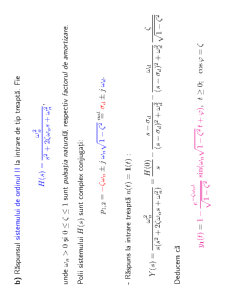 b) Răspunsul sistemului de ordinul II la intrare de tip treaptă. Fie
H(s) = ω_n² / (s² + 2ζω_n s + ω_n²),
unde ω_n > 0 și 0 ≤ ζ ≤ 1 sunt pulsația naturală, respectiv factorul de amortizare.
Polii sistemului H(s) sunt complex conjugați:
p_{1,2} = −ζω_n ± j ω_n √(1 − ζ²) = σ_d ± j ω_d.
- Răspuns la intrare treaptă u(t) = 1(t) :
Y(s) = ω_n² / (s(s² + 2ζω_n s + ω_n²)) = H(0)/s − (s − σ_d)/((s − σ_d)² + ω_d²) − ω_d/((s − σ_d)² + ω_d²) · ζ/√(1 − ζ²)
Deducem că
y_1(t) = 1 − e^{−ζω_n t}/√(1 − ζ²) sin(ω_n √(1 − ζ²) t + φ), t ≥ 0; cos φ = ζ